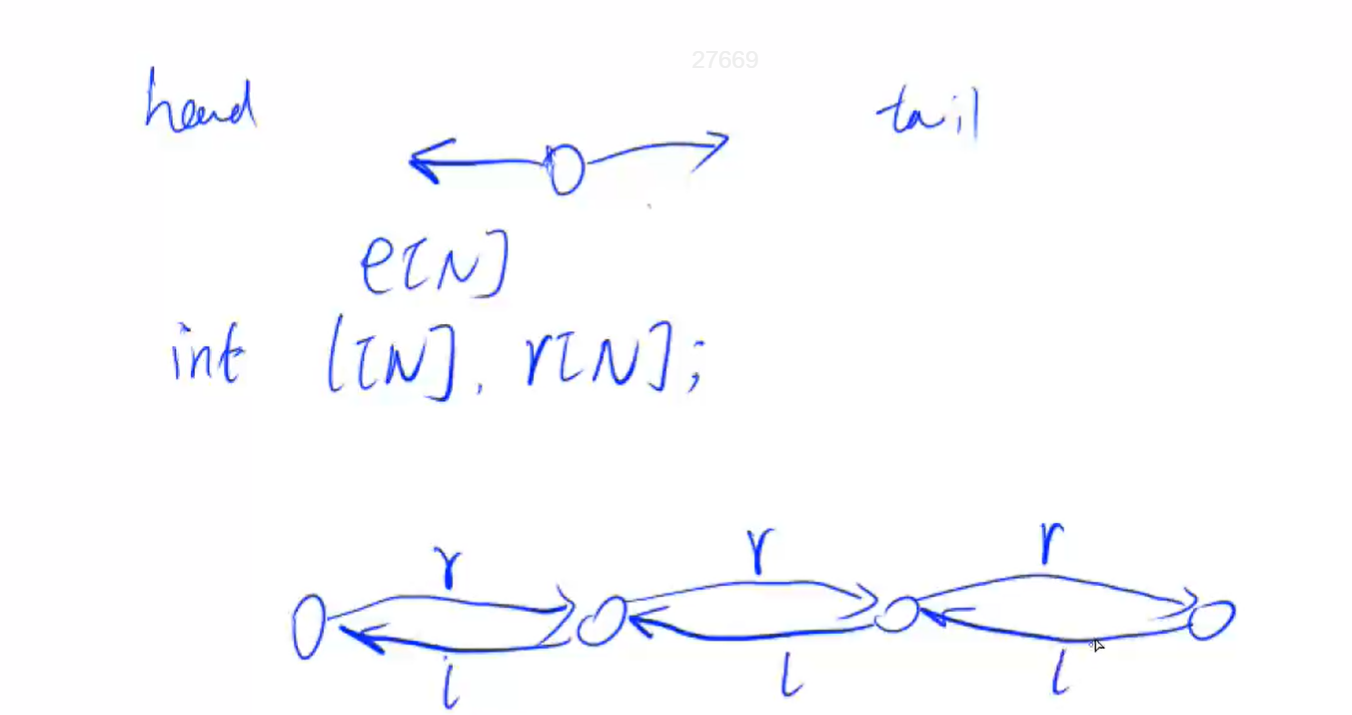 27669
head tail
e[N]
int l[N], r[N];
r r r
l l l